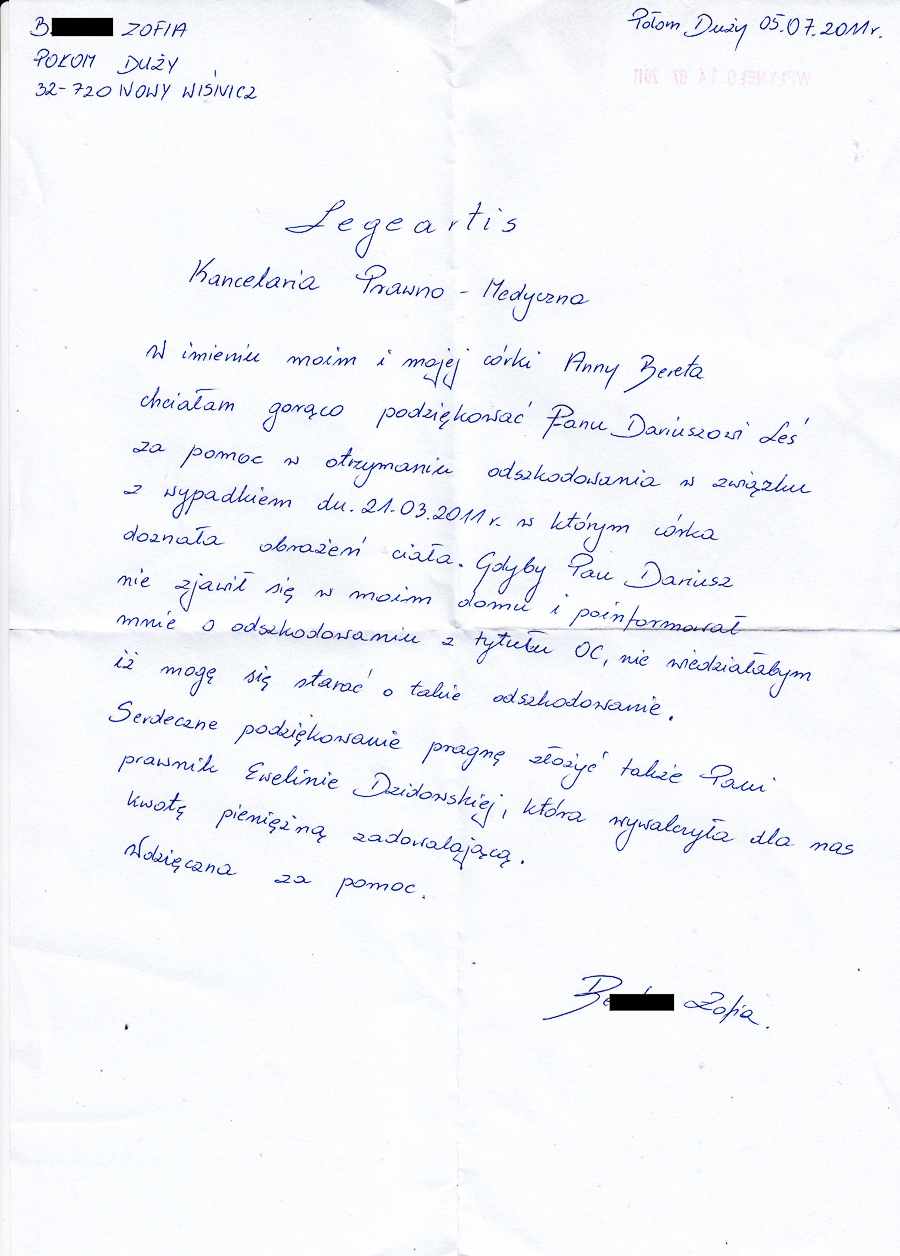 B ZOFIA
POŁOM DUŻY
32-720 NOWY WIŚNICZ
Połom Duży 05.07.2011r.
WPŁYNĘŁO 14 07 2011
Legeartis
Kancelaria Prawno - Medyczna
W imieniu moim i mojej córki Anny Bereta
chciałam gorąco podziękować Panu Dariuszowi Leś
za pomoc w otrzymaniu odszkodowania w związku
z wypadkiem dn. 21.03.2011r. w którym córka
doznała obrażeń ciała. Gdyby Pan Dariusz
nie zjawił się w moim domu i poinformował
mnie o odszkodowaniu z tytułu OC, nie wiedziałabym
iż mogę się starać o takie odszkodowanie.
Serdeczne podziękowanie pragnę złożyć także Pani
prawnik Ewelinie Dzidowskiej, która wywalczyła dla nas
kwotę pieniężną zadowalającą.
Wdzięczna za pomoc.
Be Zofia.